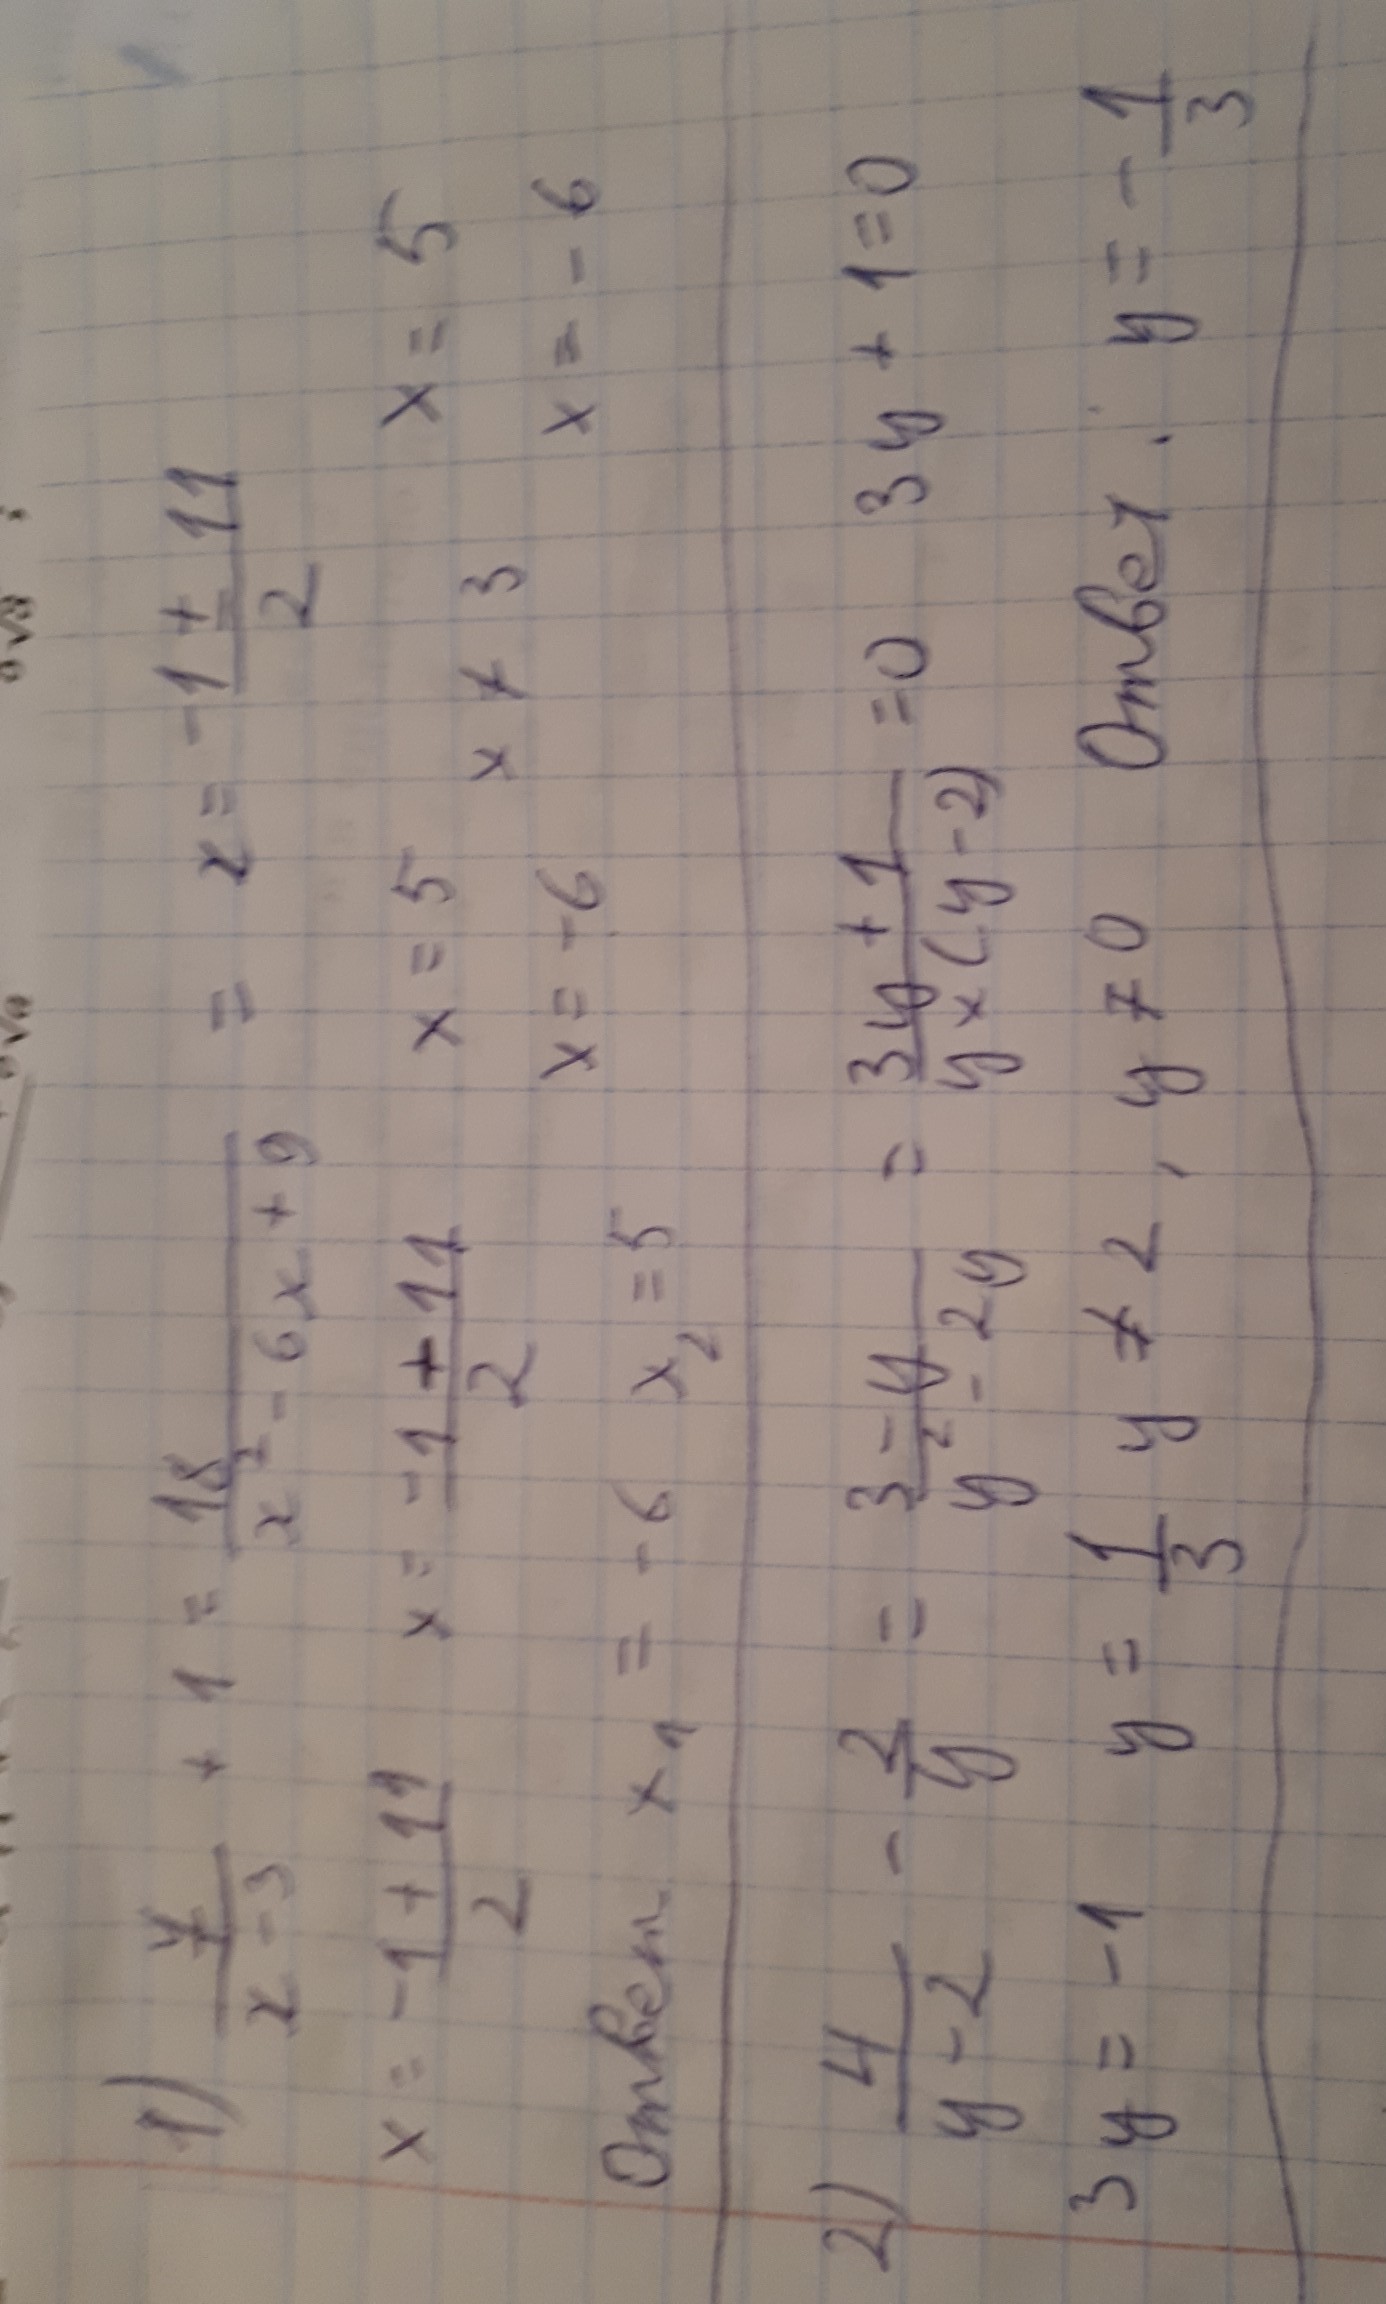 1) 7/(x-3) + 1 = 18/(x²-6x+9) = x = -1±11/2
x = -1+11/2 x = -1+11/2 x = 5 x = 5
x = -6 x ≠ 3 x = -6
Ответ x₁ = -6 x₂ = 5
2) 4/(y-2) - 2/y = 3-y/(y²-2y) = 3y+1/(y×(y-2)) = 0 3y + 1 = 0
3y = -1 y = 1/3 y ≠ 2, y ≠ 0 Ответ: y = -1/3